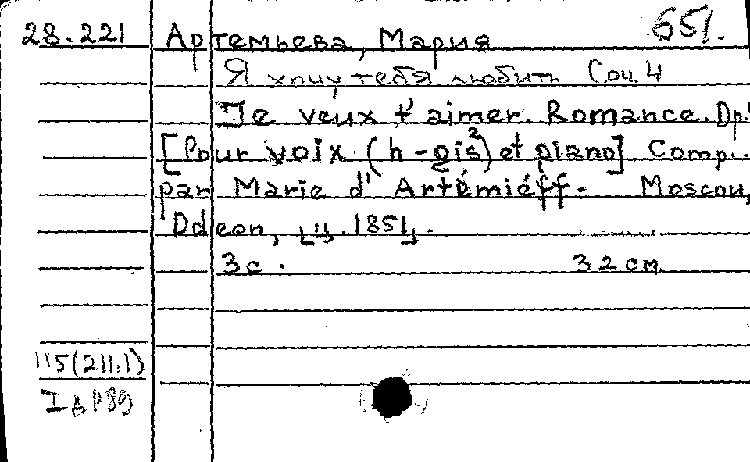 28.221 Артемьева, Мария 651.
Я хочу тебя любить Соч. 4
Je veux t'aimer. Romance. Op.
[Pour voix (h-gis²) et piano] Comp.
par Marie d'Artémiéff. Moscou,
Odeon, ц. 1851.
3 с. 32 см
115(211.1)